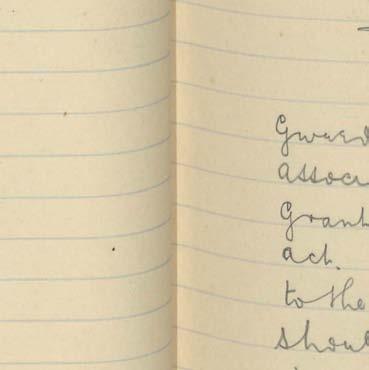 Gweed
associ
Grant
act.
to the
shoul